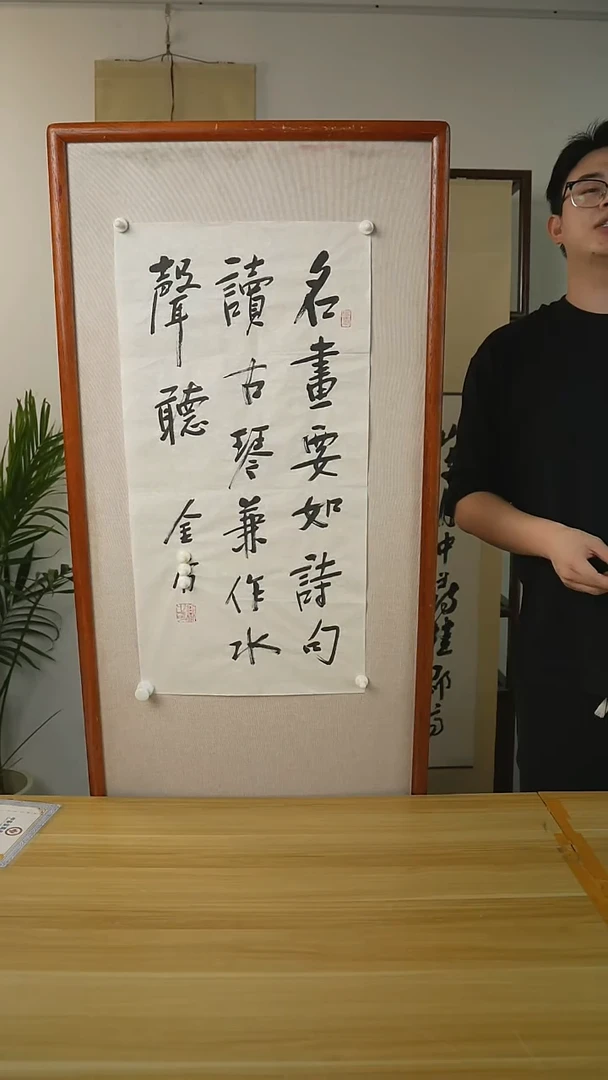 名畫要如詩句
讀古琴兼作水
聲聽